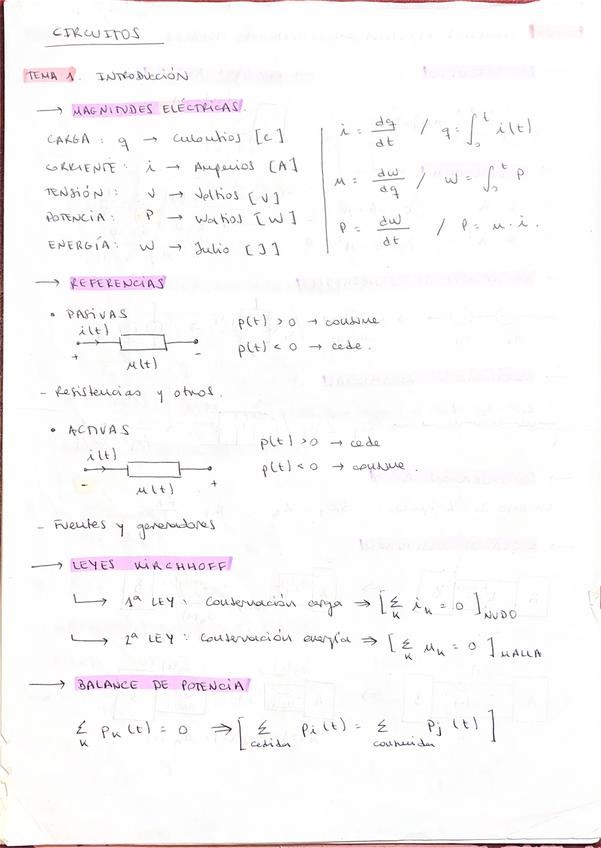 CIRCUITOS
TEMA 1. INTRODUCCIÓN
→ MAGNITUDES ELÉCTRICAS.
CARGA: q → Culombios [C]
CORRIENTE: i → Amperios [A]
TENSIÓN: v → Voltios [V]
POTENCIA: P → Watios [W]
ENERGÍA: W → Julio [J]
i = dq/dt / q = ∫₀ᵗ i(t)
u = dw/dq / W = ∫₀ᵗ P
P = dW/dt / P = u · i.
→ REFERENCIAS
• PASIVAS
i(t)
+ -
u(t)
p(t) > 0 → consume
p(t) < 0 → cede.
- Resistencias y otros.
• ACTIVAS
i(t)
- +
u(t)
p(t) > 0 → cede
p(t) < 0 → consume.
- Fuentes y generadores
→ LEYES KIRCHHOFF
↳ 1ª LEY: Conservación carga ⇒ [Σₖ iₖ = 0] NUDO
↳ 2ª LEY: Conservación energía ⇒ [Σₖ uₖ = 0] MALLA
→ BALANCE DE POTENCIA
Σₖ Pₖ(t) = 0 ⇒ [Σ cedidas Pi(t) = Σ consumidas Pj(t)]